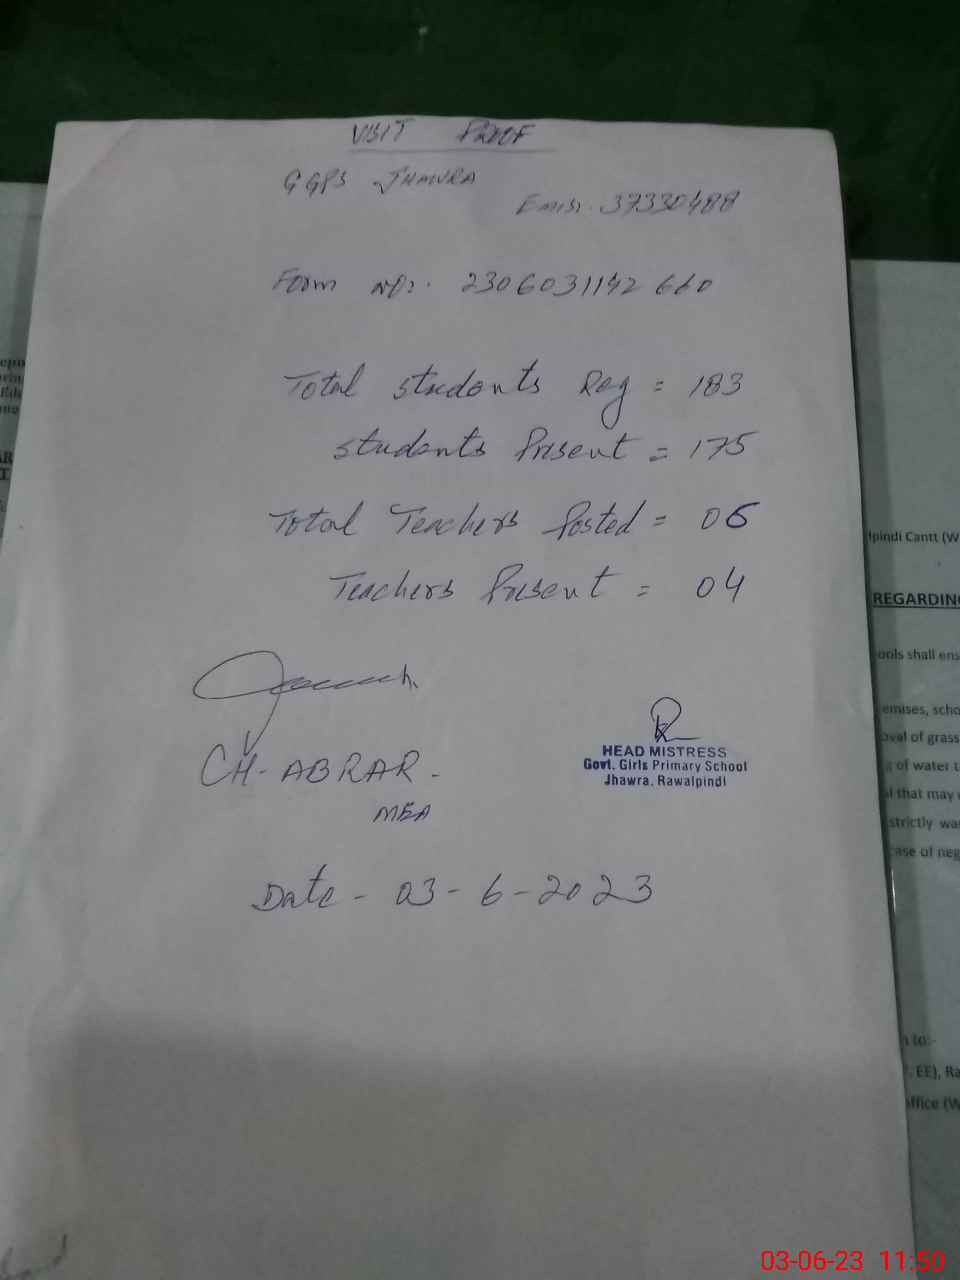 VISIT PROOF
GGPS JHAWRA
Emis:- 37330488
Form No:. 2306031142660
Total students Reg = 183
students Present = 175
Total Teachers Posted = 06
Teachers Present = 04
CH-ABRAR-
MEA
HEAD MISTRESS
Govt. Girls Primary School
Jhawra, Rawalpindi
Date - 03-6-2023
lpindi Cantt (W
REGARDING
ools shall ens
emises, scho
oval of grass
g of water t
al that may
strictly wa
case of neg
n to:-
EE), Ra
office (W
03-06-23 11:50